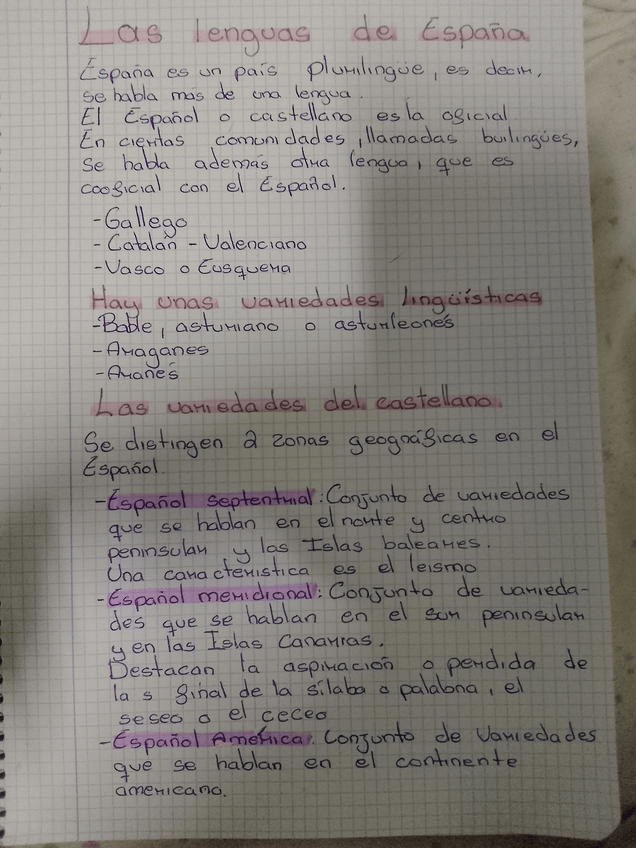 Las lenguas de España
España es un país plurilingüe, es decir,
se habla más de una lengua.
El Español o castellano es la oficial
En ciertas comunidades, llamadas builingües,
se habla además otra lengua, que es
cooficial con el Español.
-Gallego
-Catalán - Valenciano
-Vasco o Eusquera
Hay unas variedades lingüísticas
-Bable, asturiano o asturleonés
-Araganes
-Aranés
Las variedades del castellano.
Se distingen 2 zonas geográficas en el
Español.
-Español septentrial: Conjunto de variedades
que se hablan en el norte y centro
peninsular y las Islas baleares.
Una característica es el leismo
-Español meridional: Conjunto de varieda-
des que se hablan en el sur peninsular
y en las Islas Canarias.
Destacan la aspiración o perdida de
la s final de la sílaba o palabra, el
seseo o el ceceo
-Español América: Conjunto de Variedades
que se hablan en el continente
americano.